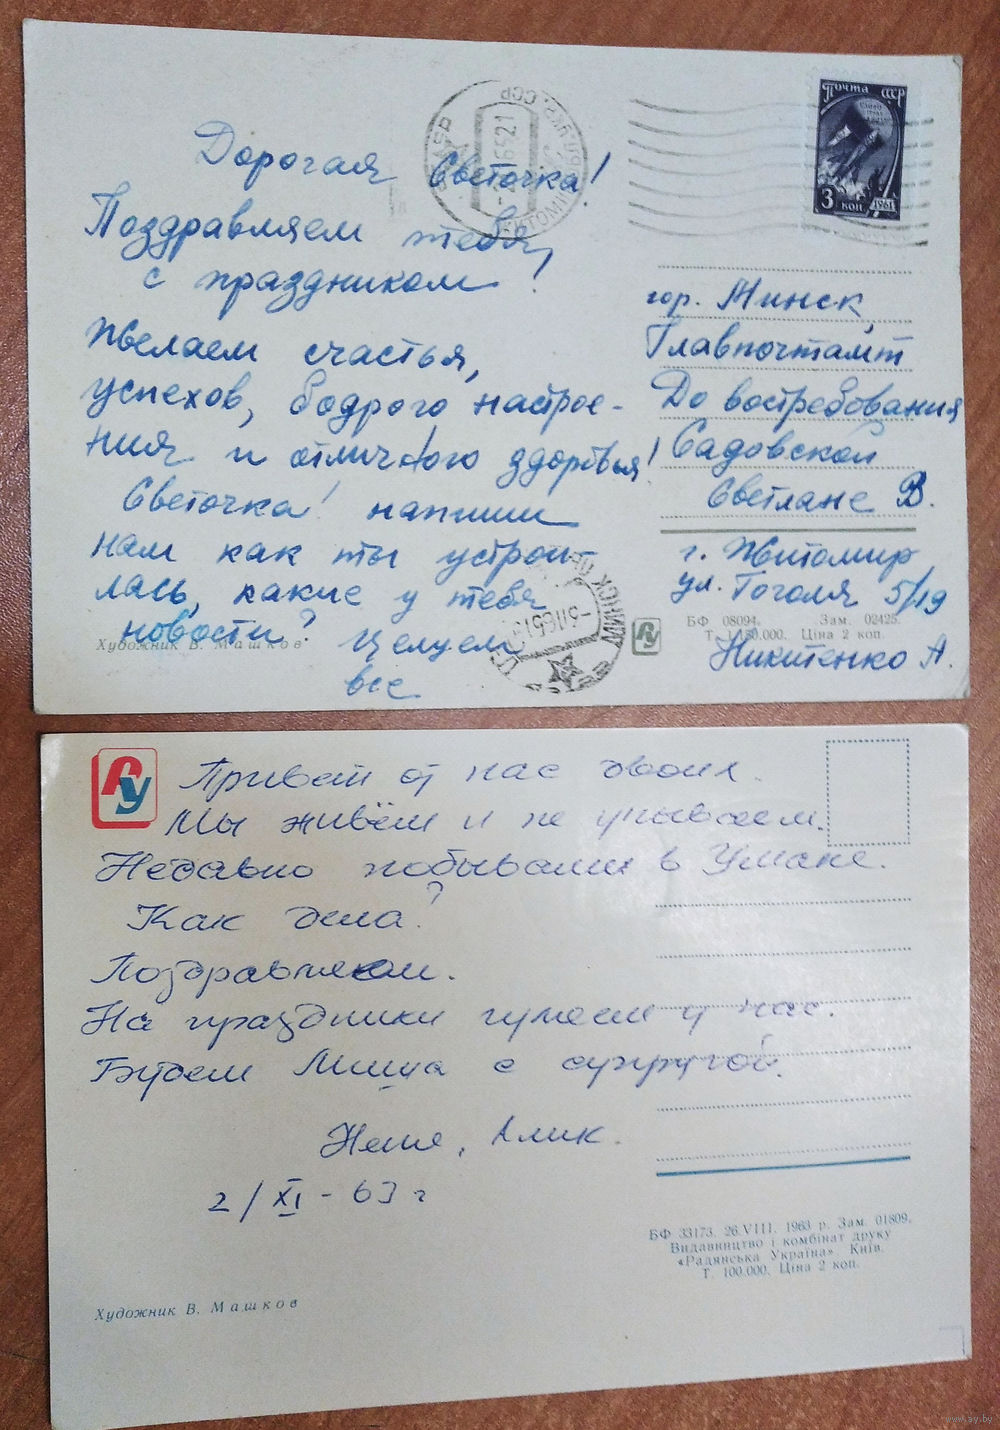 Дорогая Светочка!
Поздравляем тебя,
с праздником!
Желаем счастья,
успехов, бодрого настрое-
ния и отличного здоровья!
Светочка! напиши
нам как ты устрои-
лась, какие у тебя
новости? Целуем
все
Художник В. Машков
Почта СССР
3 коп
1961
гор. Минск,
Главпочтамт
До востребования
Садовской
Светлане В.
г. Житомир
ул. Гоголя 5/19
Никитенко А.
БФ 08094. Зам. 02425.
Ціна 2 коп.
РУ
Привет от нас двоих.
Мы живём и не унываем.
Недавно побывали в Умане.
Как дела?
Поздравляем.
На праздники гуляем у нас.
Будет Миша с супругой.
Неля, Алик.
2/XI - 63 г
БФ 33173. 26.VIII. 1963 р. Зам. 01809.
Видавництво і комбінат друку
«Радянська Україна». Київ.
Т. 100.000. Ціна 2 коп.
Художник В. Машков
www.ay.by